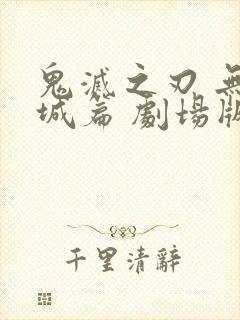 鬼滅之刃 無
城篇 劇場版
千里清辭